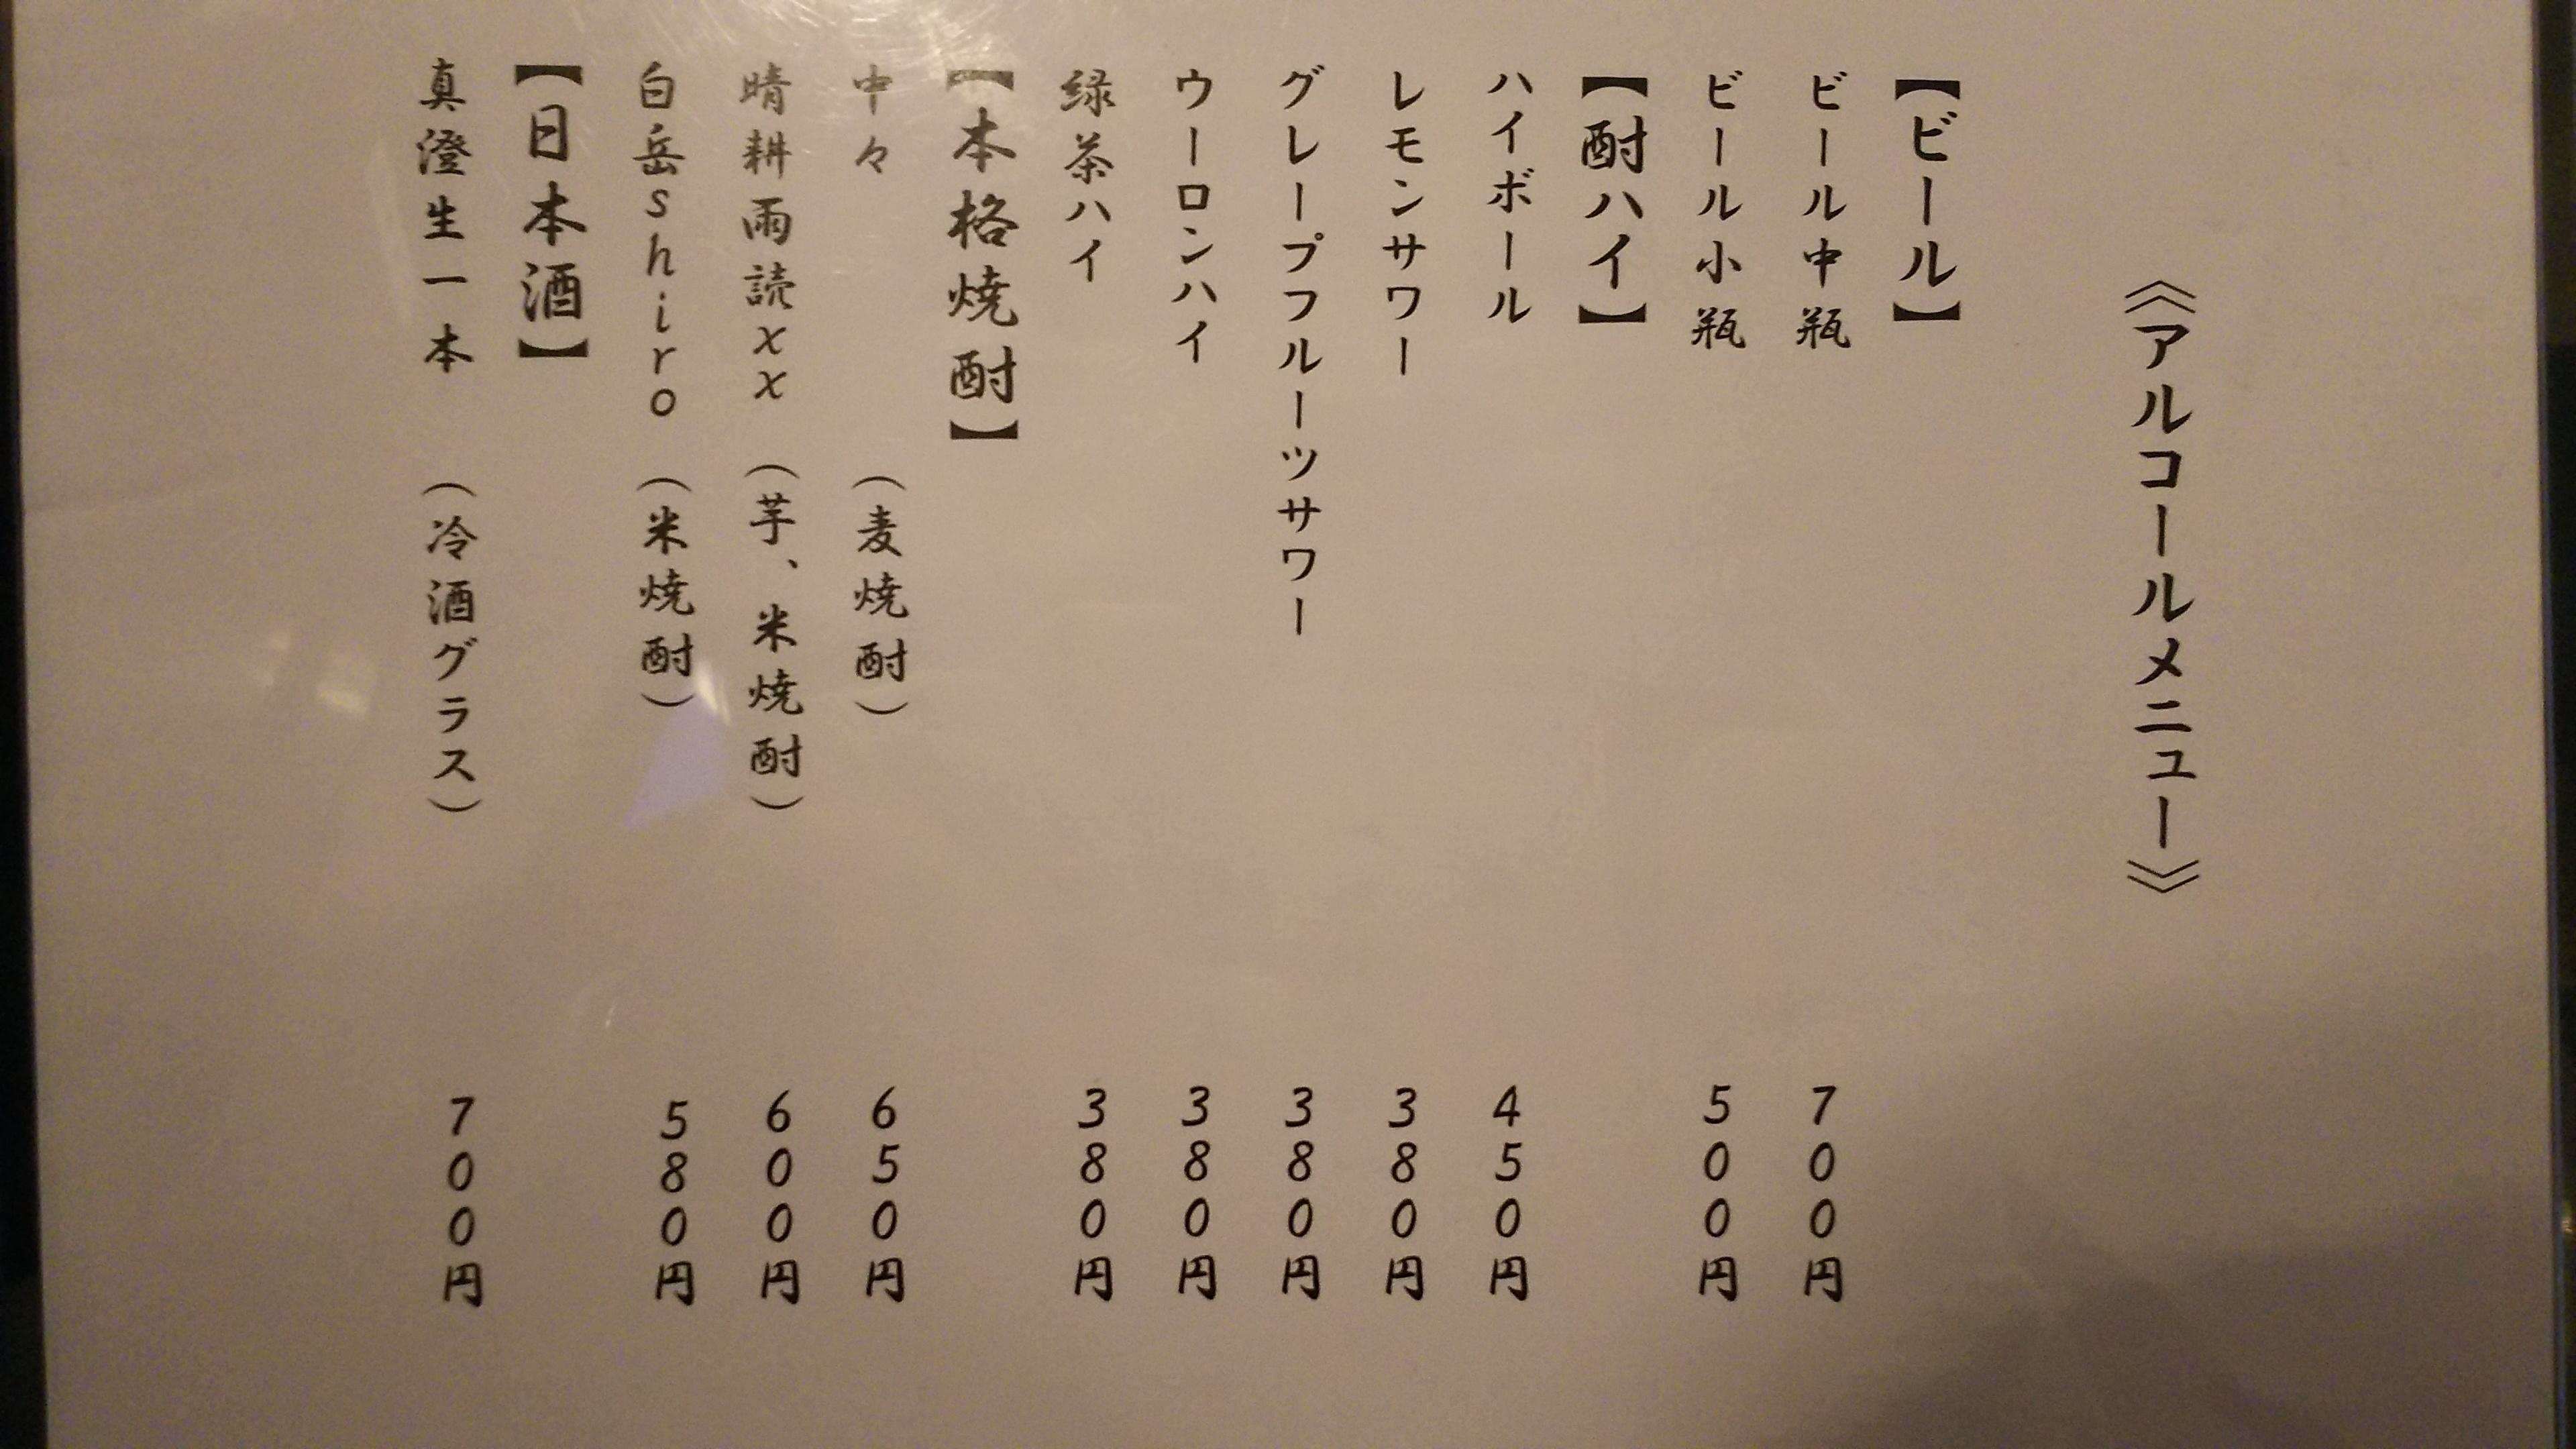 《アルコールメニュー》
【ビール】
ビール中瓶 700円
ビール小瓶 500円
【酎ハイ】
ハイボール 450円
レモンサワー 380円
グレープフルーツサワー 380円
ウーロンハイ 380円
緑茶ハイ 380円
【本格焼酎】
中々 （麦焼酎） 650円
晴耕雨読xx （芋、米焼酎） 600円
白岳shiro （米焼酎） 580円
【日本酒】
真澄生一本 （冷酒グラス） 700円